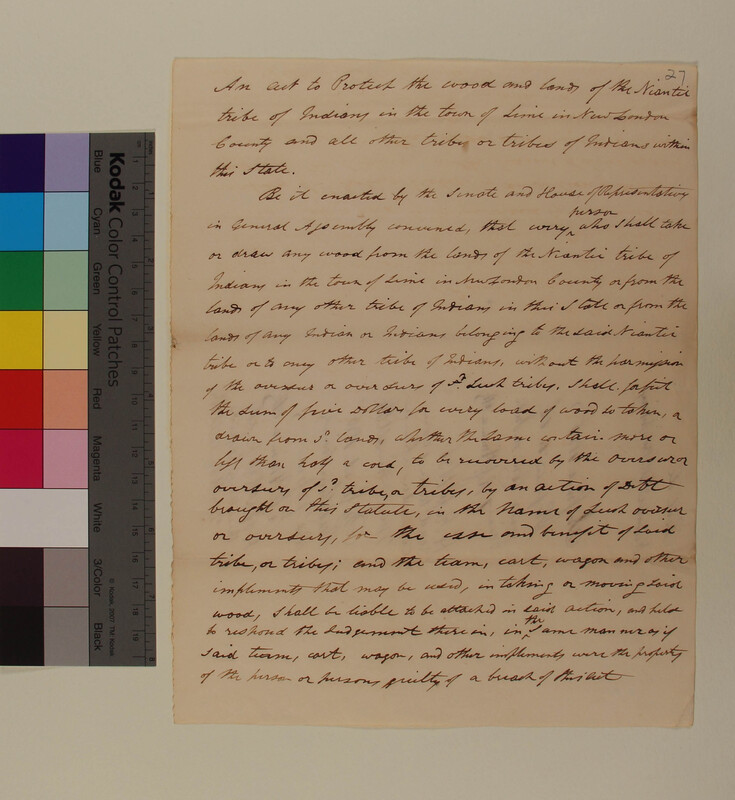 27
An act to Protect the wood and lands of the Niantic
tribe of Indians in the town of Lime in New London
County and all other tribe or tribes of Indians within
this State.
Be it enacted by the Senate and House of Representatives
person
in General Assembly convened, that every ‸ who shall take
or draw any wood from the lands of the Niantic tribe of
Indians in the town of Lime in New London County or from the
lands of any other tribe of Indians in this State or from the
lands of any Indian or Indians belonging to the said Niantic
tribe or to any other tribe of Indians, without the permission
of the overseer or overseers of sd. such tribes, shall forfeit
the sum of five Dollars for every load of wood so taken, or
drawn from sd. lands, whether the same contain more or
less than half a cord, to be recovered by the overseer or
overseers of sd. tribe, or tribes, by an action of Debt
brought on this Statute, in the name of such overseer
or overseers, for the use and benefit of said
tribe, or tribes; and the team, cart, wagon and other
implements that may be used, in taking or moving said
wood, shall be liable to be attached in said action, and held
the
to respond the Judgement there in, in ‸ same manner as if
said team, cart, wagon, and other implements were the property
of the person or persons guilty of a breach of this act
Kodak Color Control Patches
Blue
Cyan
Green
Yellow
Red
Magenta
White
3/Color
Black
© Kodak, 2007 TM: Kodak